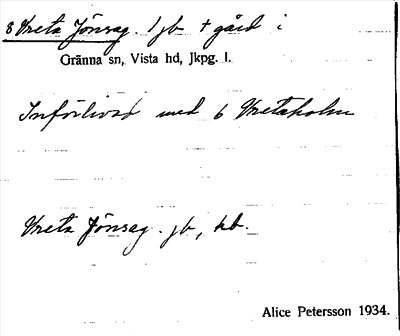 8 Vreta Jönsag. 1 jb + gård i
Gränna sn, Vista hd, Jkpg. l.
Införlivad med 6 Vretaholm
Vreta Jönsag. jb, kb.
Alice Petersson 1934.